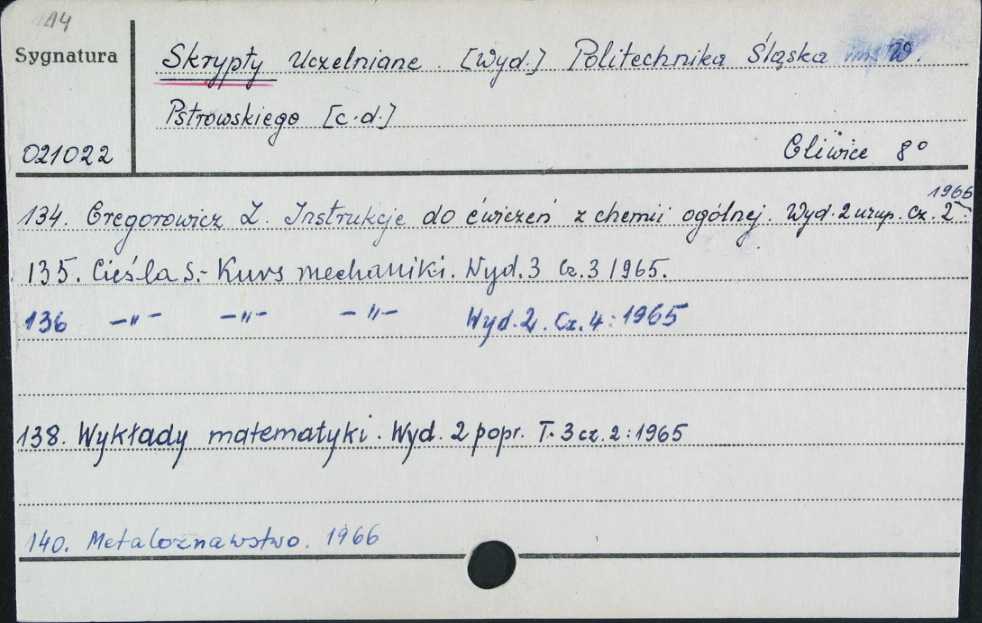 114
Sygnatura
Skrypty Uczelniane. [Wyd.] Politechnika Śląska im. W.
Pstrowskiego [c.d.]
021022
Gliwice 8°
1966
134. Gregorowicz Z. Instrukcje do ćwiczeń z chemii ogólnej. Wyd. 2 uzup. Cz. 2:
135. Cieśla S.- Kurs mechaniki. Wyd. 3 Cz. 3 1965.
136 -"- -"- -"- Wyd. 2. Cz. 4: 1965
138. Wykłady matematyki. Wyd. 2 popr. T. 3 cz. 2: 1965
140. Metaloznawstwo. 1966